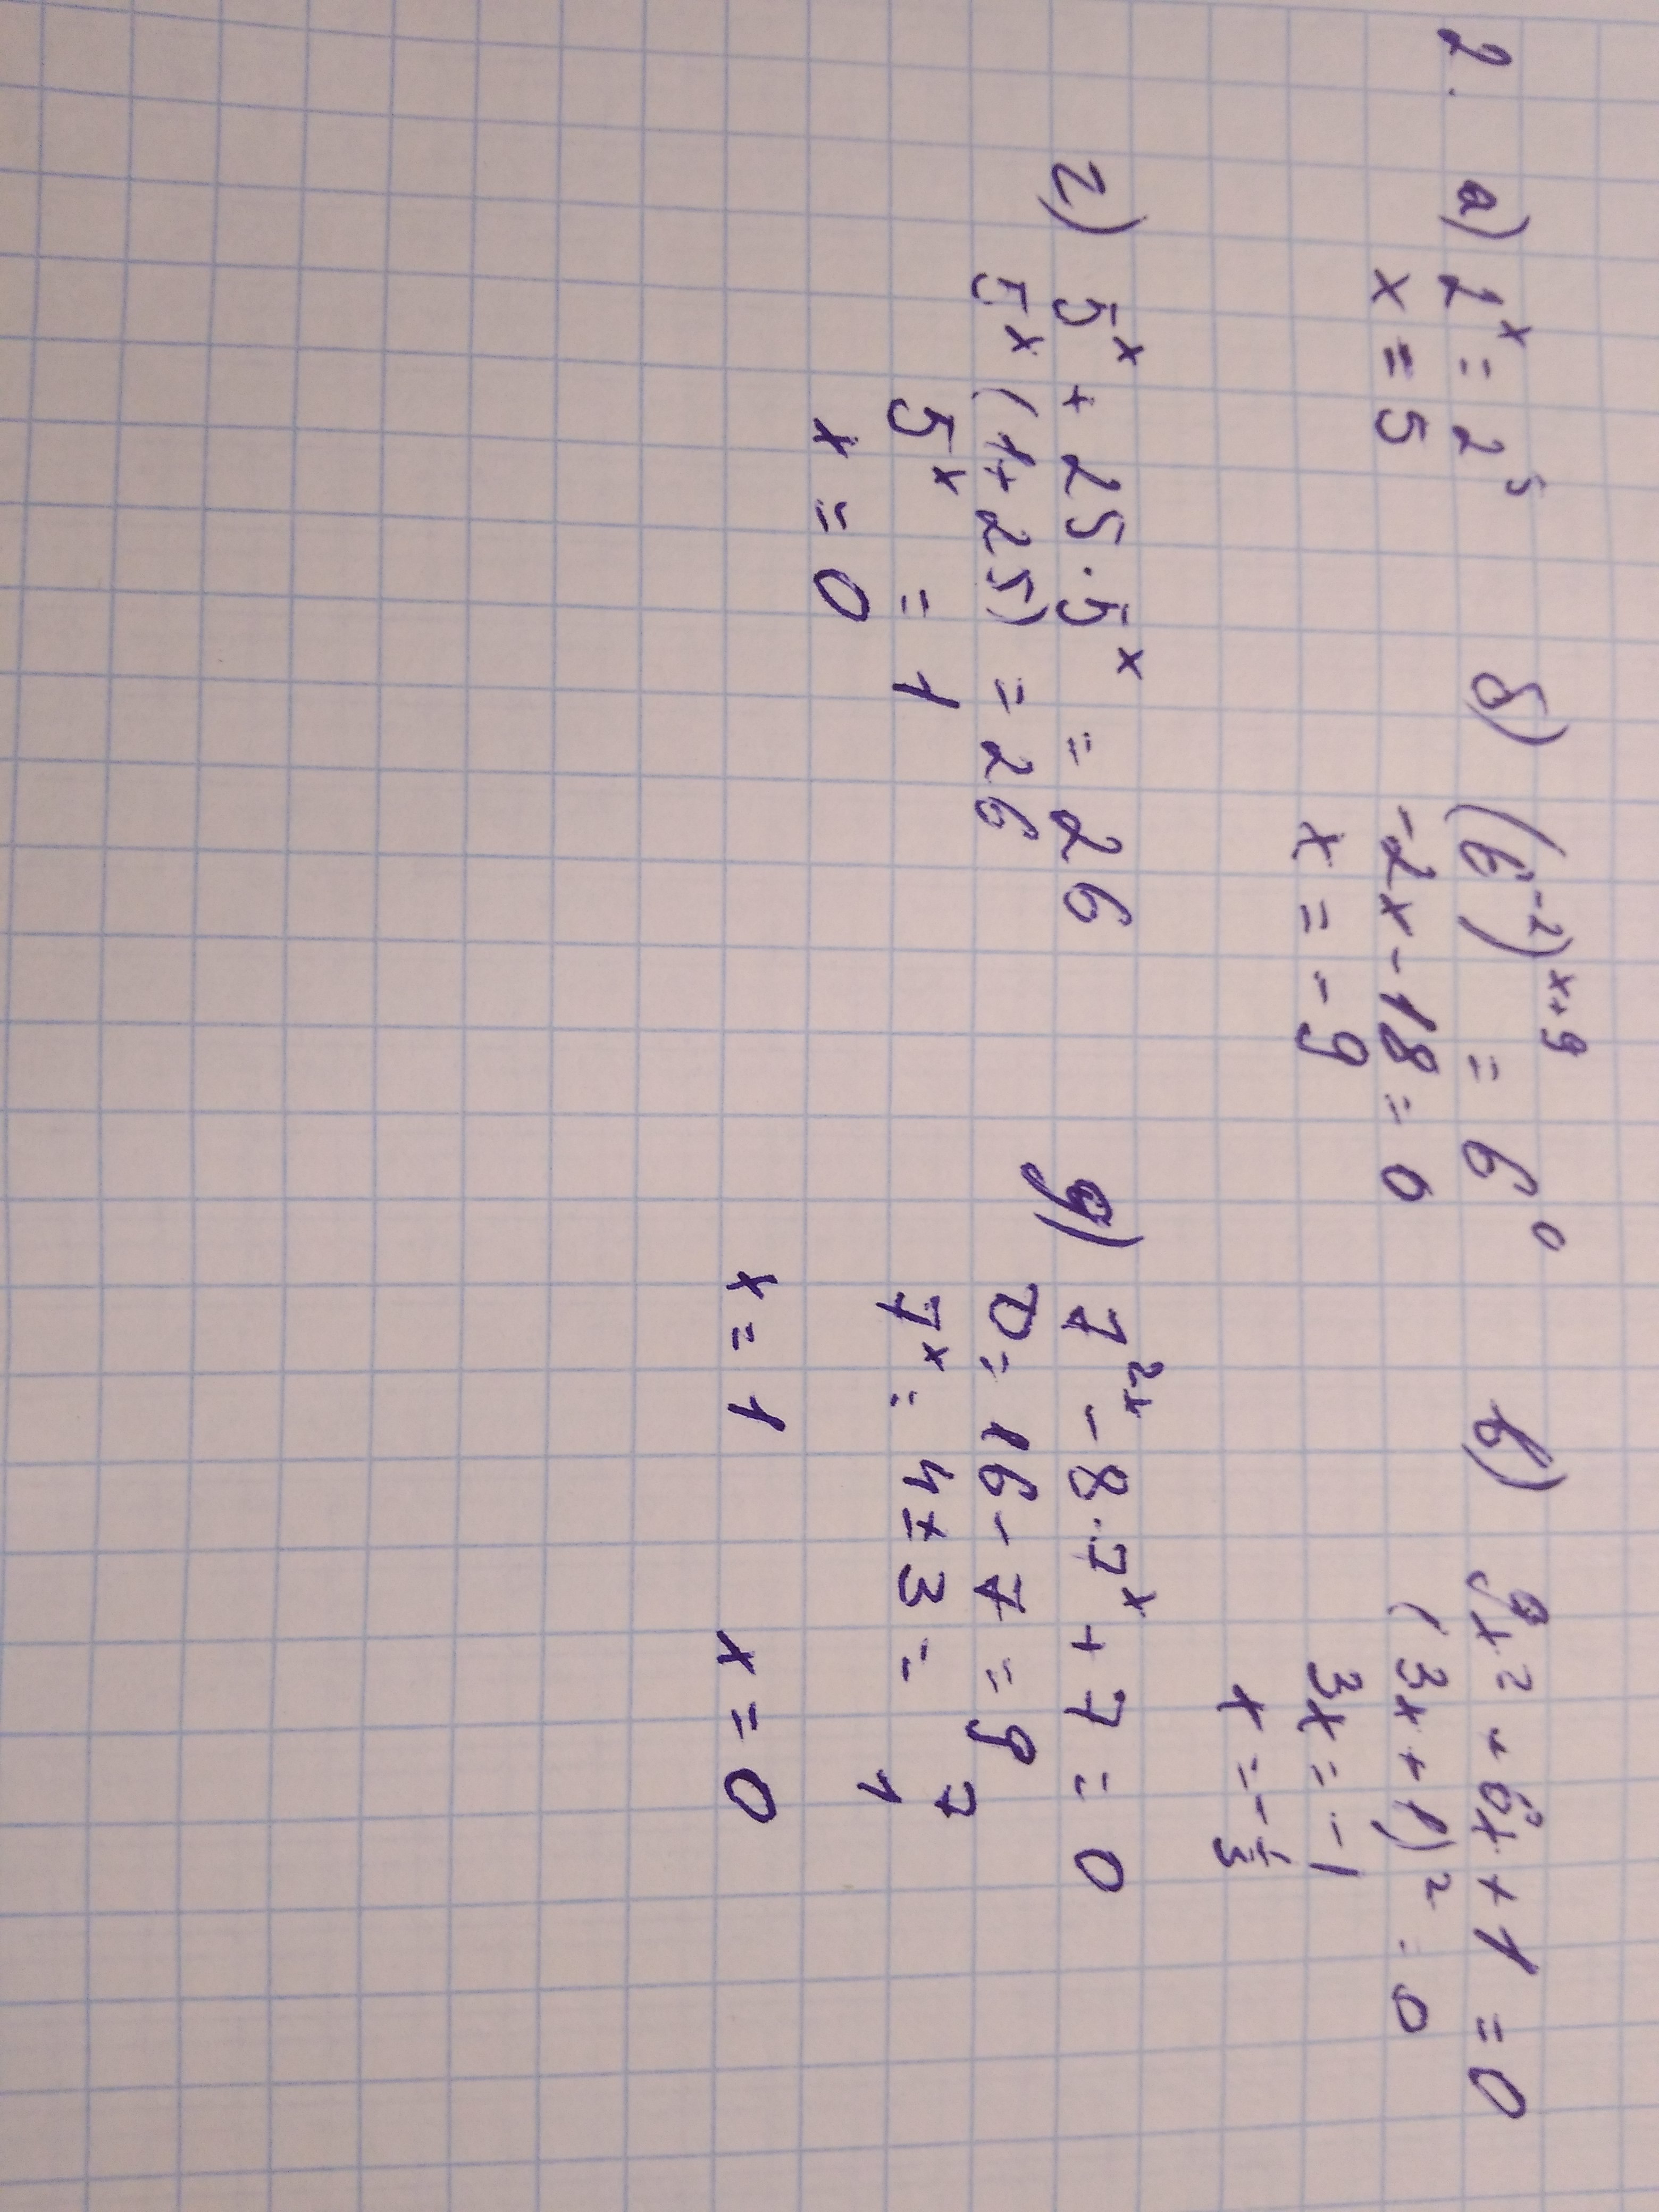 2. а) 2^x = 2^5
x = 5
б) (6^-2)^x+9 = 6^0
-2x - 18 = 0
x = -9
в) 9x^2 + 6x + 1 = 0
(3x + 1)^2 = 0
3x = -1
x = -1/3
г) 5^x + 25 · 5^x = 26
5^x (1 + 25) = 26
5^x = 1
x = 0
д) 7^2x - 8 · 7^x + 7 = 0
D = 16 - 7 = 9
7^x = 4 ± 3 = 7
1
x = 1 x = 0